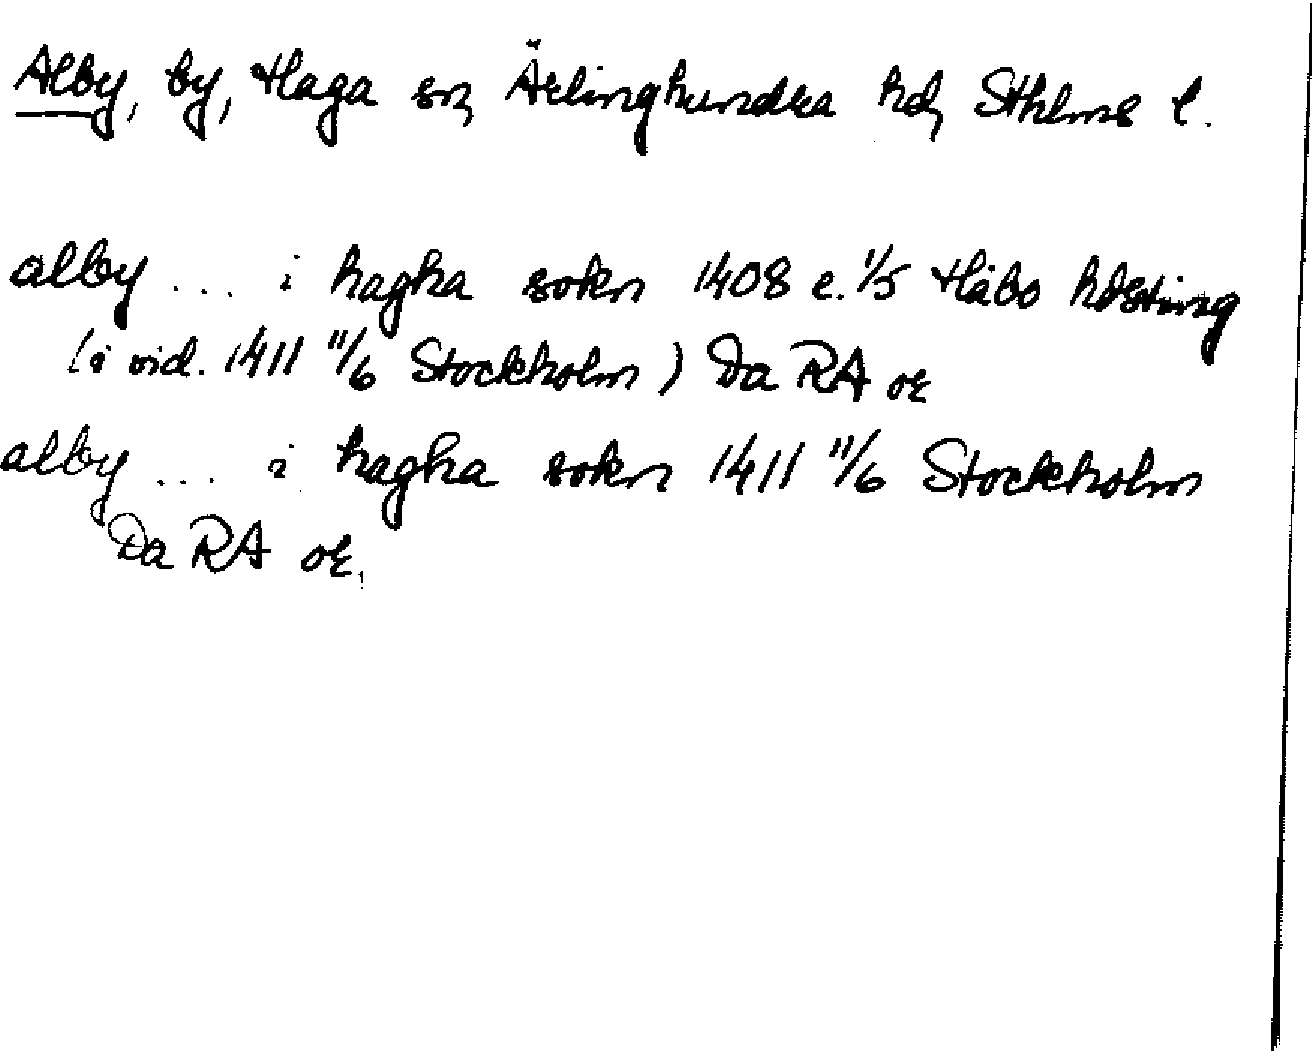 Alby, by, Haga sn, Ärlinghundra hd, Sthlms l.
alby ... i hagha sokn 1408 e. 1/5 Håbo hdsting
(i vid. 1411 11/6 Stockholm) Da RA or
alby ... i hagha sokn 1411 11/6 Stockholm
Da RA or.